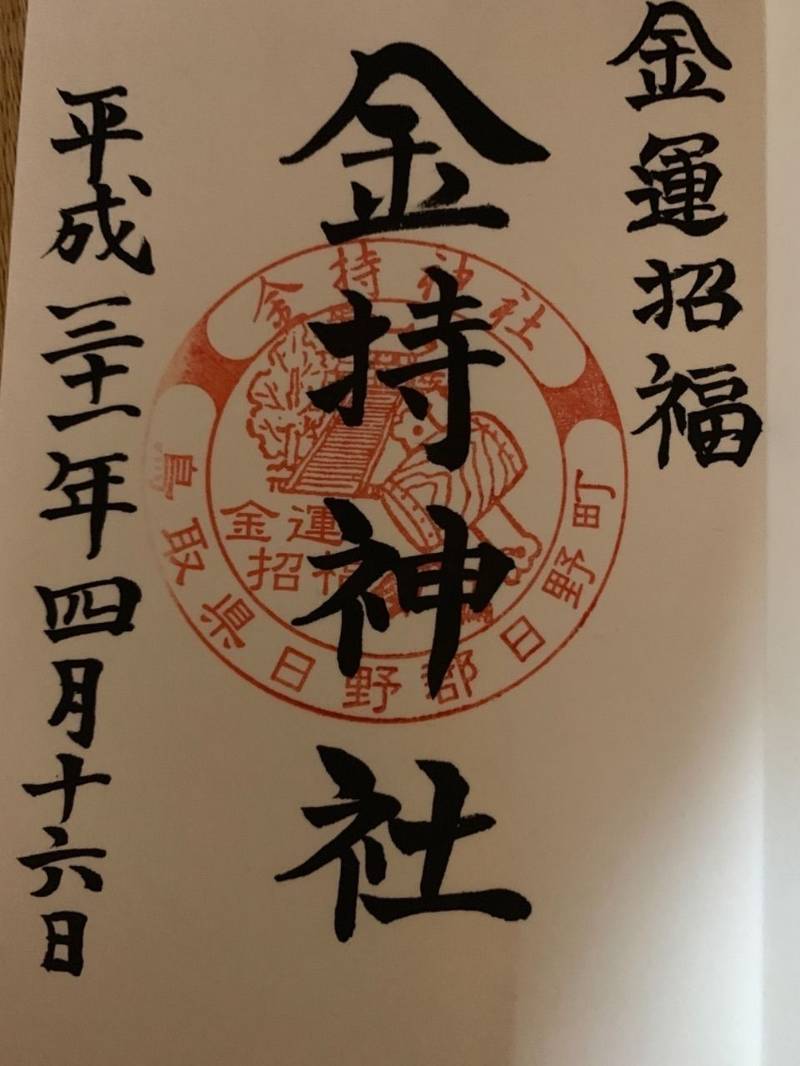 金運招福
金持神社
平成三十一年四月十六日
金持神社
金運
招福
鳥取県日野郡日野町